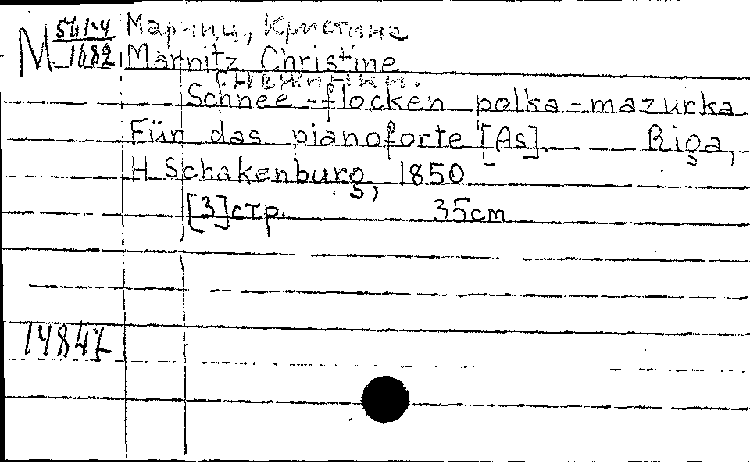 М 561-4/1082 Марниц, Кристине
Marnitz Christine
Снежинки.
Schnee-flocken polka-mazurka
Für das pianoforte [As]. Riga,
H Schakenburg, 1850
[3]стр. 35cm
14847